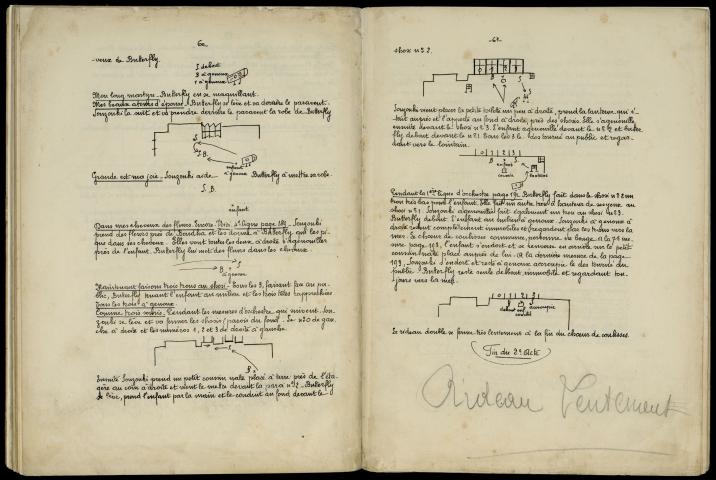 60
-veux de Butterfly.
S debout
B à genoux
à genoux
Mon long martyre_ Butterfly en se maquillant.
Mes beaux atours d'épouse_ Butterfly se lève et va derrière le paravent.
Souzouki la suit et va prendre derrière le paravent la robe de Butterfly
S.
B.
enfant
à genoux
Grande est ma joie_ Souzouki aide Butterfly à mettre sa robe.
S. B.
enfant
Dans mes cheveux des fleurs encore_ page 189_ Souzouki
prend des fleurs près de et les donne à Butterfly qui les pi-
que dans ses cheveux_ Elles vont toutes les deux à droite s'agenouiller
près de l'enfant_ Butterfly lui met des fleurs dans les cheveux.
S
B
à genoux
Maintenant faisons trois trous au shosi_ Tous les 3, faisant face au pu-
blic, Butterfly tenant l'enfant au milieu et les trois têtes rapprochées
Tous les trois à genoux.
Comme trois souris_ Pendant les mesures d'orchestre qui suivent_ Sou-
zouki se lève et va fermer les shosis/parois du fond_ Le n°0 de gau-
che à droite et les numéros 1, 2 et 3 de droite à gauche.
S
B
Ensuite Souzouki prend un petit coussin natte placé à terre près de l'éta-
gère au coin à droite et vient le mettre devant la paroi n°2_ Butterfly
se lève, prend l'enfant par la main et le conduit au fond devant le
61
shosi n°2.
0 1 2 3
B S
Souzouki vient placer la petite toilette un peu à droite, prend la lanterne qui é-
tait auprès et l'apporte au fond à droite, près des shosis. Elle s'agenouille
ensuite devant le shosi n°3. L'enfant agenouillé devant le n°2 et Butter-
fly debout devant le n°1. Tous les 3 le dos tourné au public et regar-
dant vers le lointain.
0 1 2 3
B enfant S
coussin
lanterne
Pendant la 1ère ligne d'orchestre page 191_ Butterfly fait dans le shosi n°2 un
trou très bas pour l'enfant. Elle fait un autre trou à hauteur de ses yeux au
shosi n°1. Souzouki agenouillée fait également un trou au shosi n°3.
Butterfly debout l'enfant au milieu à genoux Souzouki à genoux à
droite restent complètement immobiles et regardent par les trous vers la
mer. Le chœur de coulisses commence, personne ne bouge. A la 7e me-
sure page 193, l'enfant s'endort et se renverse en arrière sur le petit
coussin natte placé auprès de lui. A la dernière mesure de la page
193, Souzouki s'endort et reste à genoux accroupie le dos tourné au
public_ Butterfly reste seule debout immobile et regardant tou-
jours vers la mer.
0 1 2 3
B S
debout accroupie
couché
Le rideau double se ferme très lentement à la fin du chœur de coulisses.
Fin du 2e Acte
Rideau lentement